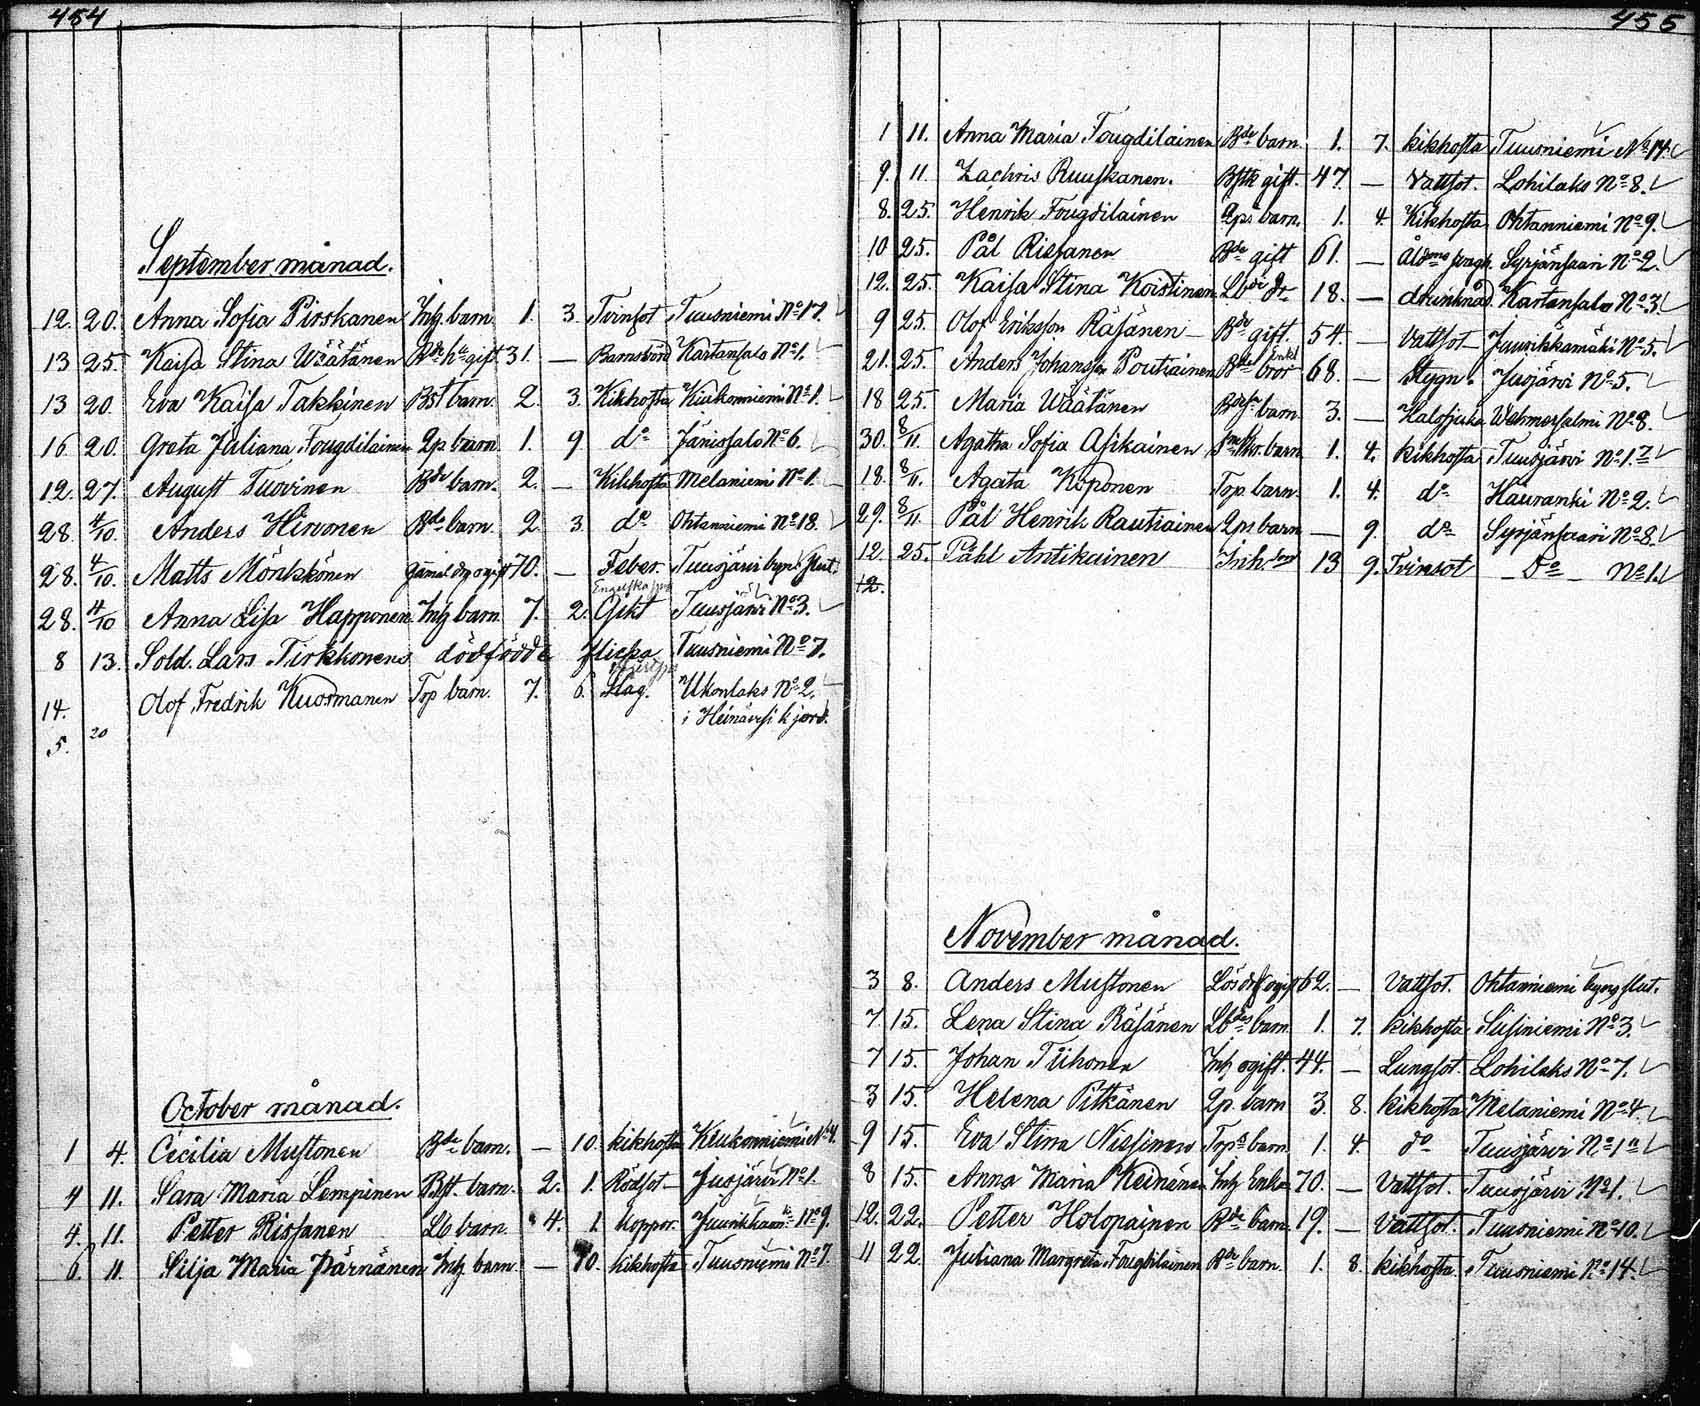 454
September månad.
12. 20. Anna Sofia Pirskanen Inh. barn. 1. 3. Tvinsot Tuusniemi No 17.
13 25. Kaisa Stina Wäätänen Bde hu gift 31. — Barnsbörd Kartansalo No 1.
13 20. Eva Kaisa Takkinen Bst barn. 2. 3. Kikhosta Kiukonniemi No 1.
16 20. Greta Juliana Fougdilainen Lp. barn 1. 9 do Jänissalo No 6.
12. 27. August Tuovinen Bde barn. 2. — Kikhosta Melaniemi No 1.
28. 4/10. Anders Hirvonen Bde barn. 2 3. do Ohtaniemi No 18.
28. 4/10. Matts Mönkkönen gamal dr ogift 70. — Feber. Tuusjärvi byns slut.
28. 4/10 Anna Lisa Happonen Inh barn 7. 2. Engelska sjuk Gikt Tuusjärvi No 3.
8 13. Sold. Lars Tirkkonens dödfödde flicka Tuusniemi No 7.
14. Olof Fredrik Kuosmanen Top barn. 7. 6. Slag. Ukonlaks No 2.
5. 20 i Heinävesi k jord.
October månad.
1 4. Cecilia Mustonen Bde barn. — 10. kikhosta Kiukonniemi No 4.
4 11. Sara Maria Lempinen Bst. barn. 2. 1. Rödsot — Juojärvi No 1.
4. 11. Petter Rissanen Lb barn. 4. 1. koppor. Juurikkam: No 9.
6. 11. Silja Maria Pärnänen Inh. barn. — 10. kikhosta Tuusniemi No 7.
455
1 11. Anna Maria Fougdilainen Bde barn. 1. 7. kikhosta Tuusniemi No 14.
9. 11. Zachris Ruuskanen. Bstk gift. 47 — Vattsot. Lohilaks No 8.
8. 25. Henrik Fougdilainen Lps barn. 1. 4 Kikhosta Ohtanniemi No 9.
10 25. Pål Rissanen Bde gift 61. — Åldoms svagh. Syrjänsaari No 2.
12. 25. Kaisa Stina Koistinen Lbdi dr 18. — drunknad. Kartansalo No 3.
9 25. Olof Eriksson Räsänen — Bde gift. 54. — Vattsot Juurikkamäki No 5.
21. 25. Anders Johansson Poutiainen Bde bror Enkl 68. — Stygn. Juojärvi No 5.
18 25. Maria Wäätänen barn 3. — Halssjuka Wehmersalmi No 8.
30. 8/11. Agatha Sofia Asikainen barn 1. 4. kikhosta Tuusjärvi No 1.
18. 8/11. Agata Koponen Top. barn. 1. 4. do Kauranki No 2.
29. 8/11 Pål Henrik Rautiainen Lps barn — 9. do Syrjänsaari No 8.
12. 25. Påhl Antikainen Inh. son 13 9. Tvinsot — Do — No 1.
12.
November månad.
3 8. Anders Mustonen Lösdr ogift 62. — Vattsot. Ohtanniemi byns slut.
7. 15. Lena Stina Räsänen Lbdes barn 1. 7. kikhosta Siisiniemi No 3.
7 15. Johan Tiihonen Inh ogift. 44. — Lungsot. Lohilaks No 7.
3 15. Helena Pitkänen Lp. barn 3. 8. kikhosta Melaniemi No 4.
9 15. Eva Stina Nissinen Tops barn 1. 4. do Tuusjärvi No 1
8 15. Anna Maria Keinänen Inh Enka 70. — Vattsot. Tuusjärvi No 1.
12. 22. Petter Holopainen Bde barn. 19. — Vattsot. Tuusniemi No 10.
11 22. Juliana Margreta Fougdilainen Bde barn. 1. 8. kikhosta. Tuusniemi No 14.